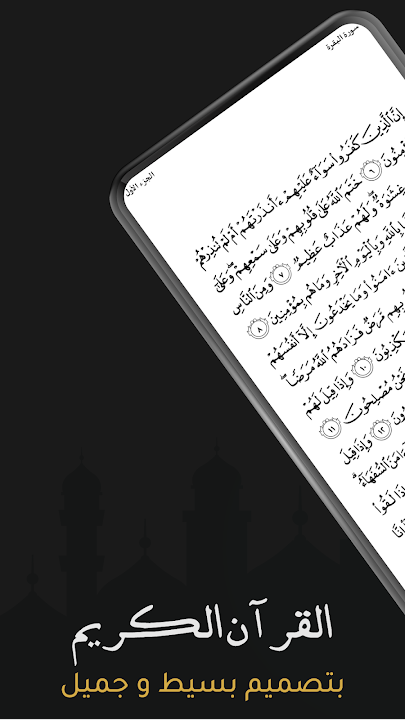 سورة البقرة
الجزء الأول
إِنَّ ٱلَّذِينَ كَفَرُوا۟ سَوَآءٌ عَلَيْهِمْ ءَأَنذَرْتَهُمْ أَمْ لَمْ تُنذِرْهُمْ
خَتَمَ ٱللَّهُ عَلَىٰ قُلُوبِهِمْ وَعَلَىٰ سَمْعِهِمْ ۖ وَعَلَىٰ
غِشَٰوَةٌ ۖ وَلَهُمْ عَذَابٌ عَظِيمٌ ٧ وَمِنَ ٱلنَّاسِ
بِٱللَّهِ وَبِٱلْيَوْمِ ٱلْءَاخِرِ وَمَا هُم بِمُؤْمِنِينَ ٨
ءَامَنُوا۟ وَمَا يَخْدَعُونَ إِلَّآ أَنفُسَهُمْ
مَّرَضٌ فَزَادَهُمُ ٱللَّهُ مَرَضًا ۖ
يَكْذِبُونَ ١٠ وَإِذَا قِيلَ لَهُمْ
نَحْنُ مُصْلِحُونَ ١١
١٢ وَإِذَا قِيلَ
ءَامَنَ ٱلسُّفَهَآءُ ۗ
لَقُوا۟
القرآن الكريم
بتصميم بسيط و جميل